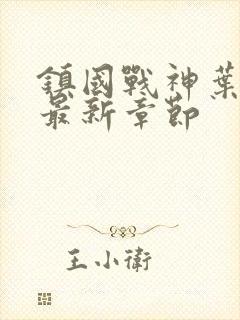 鎮國戰神葉
最新章節
王小衛